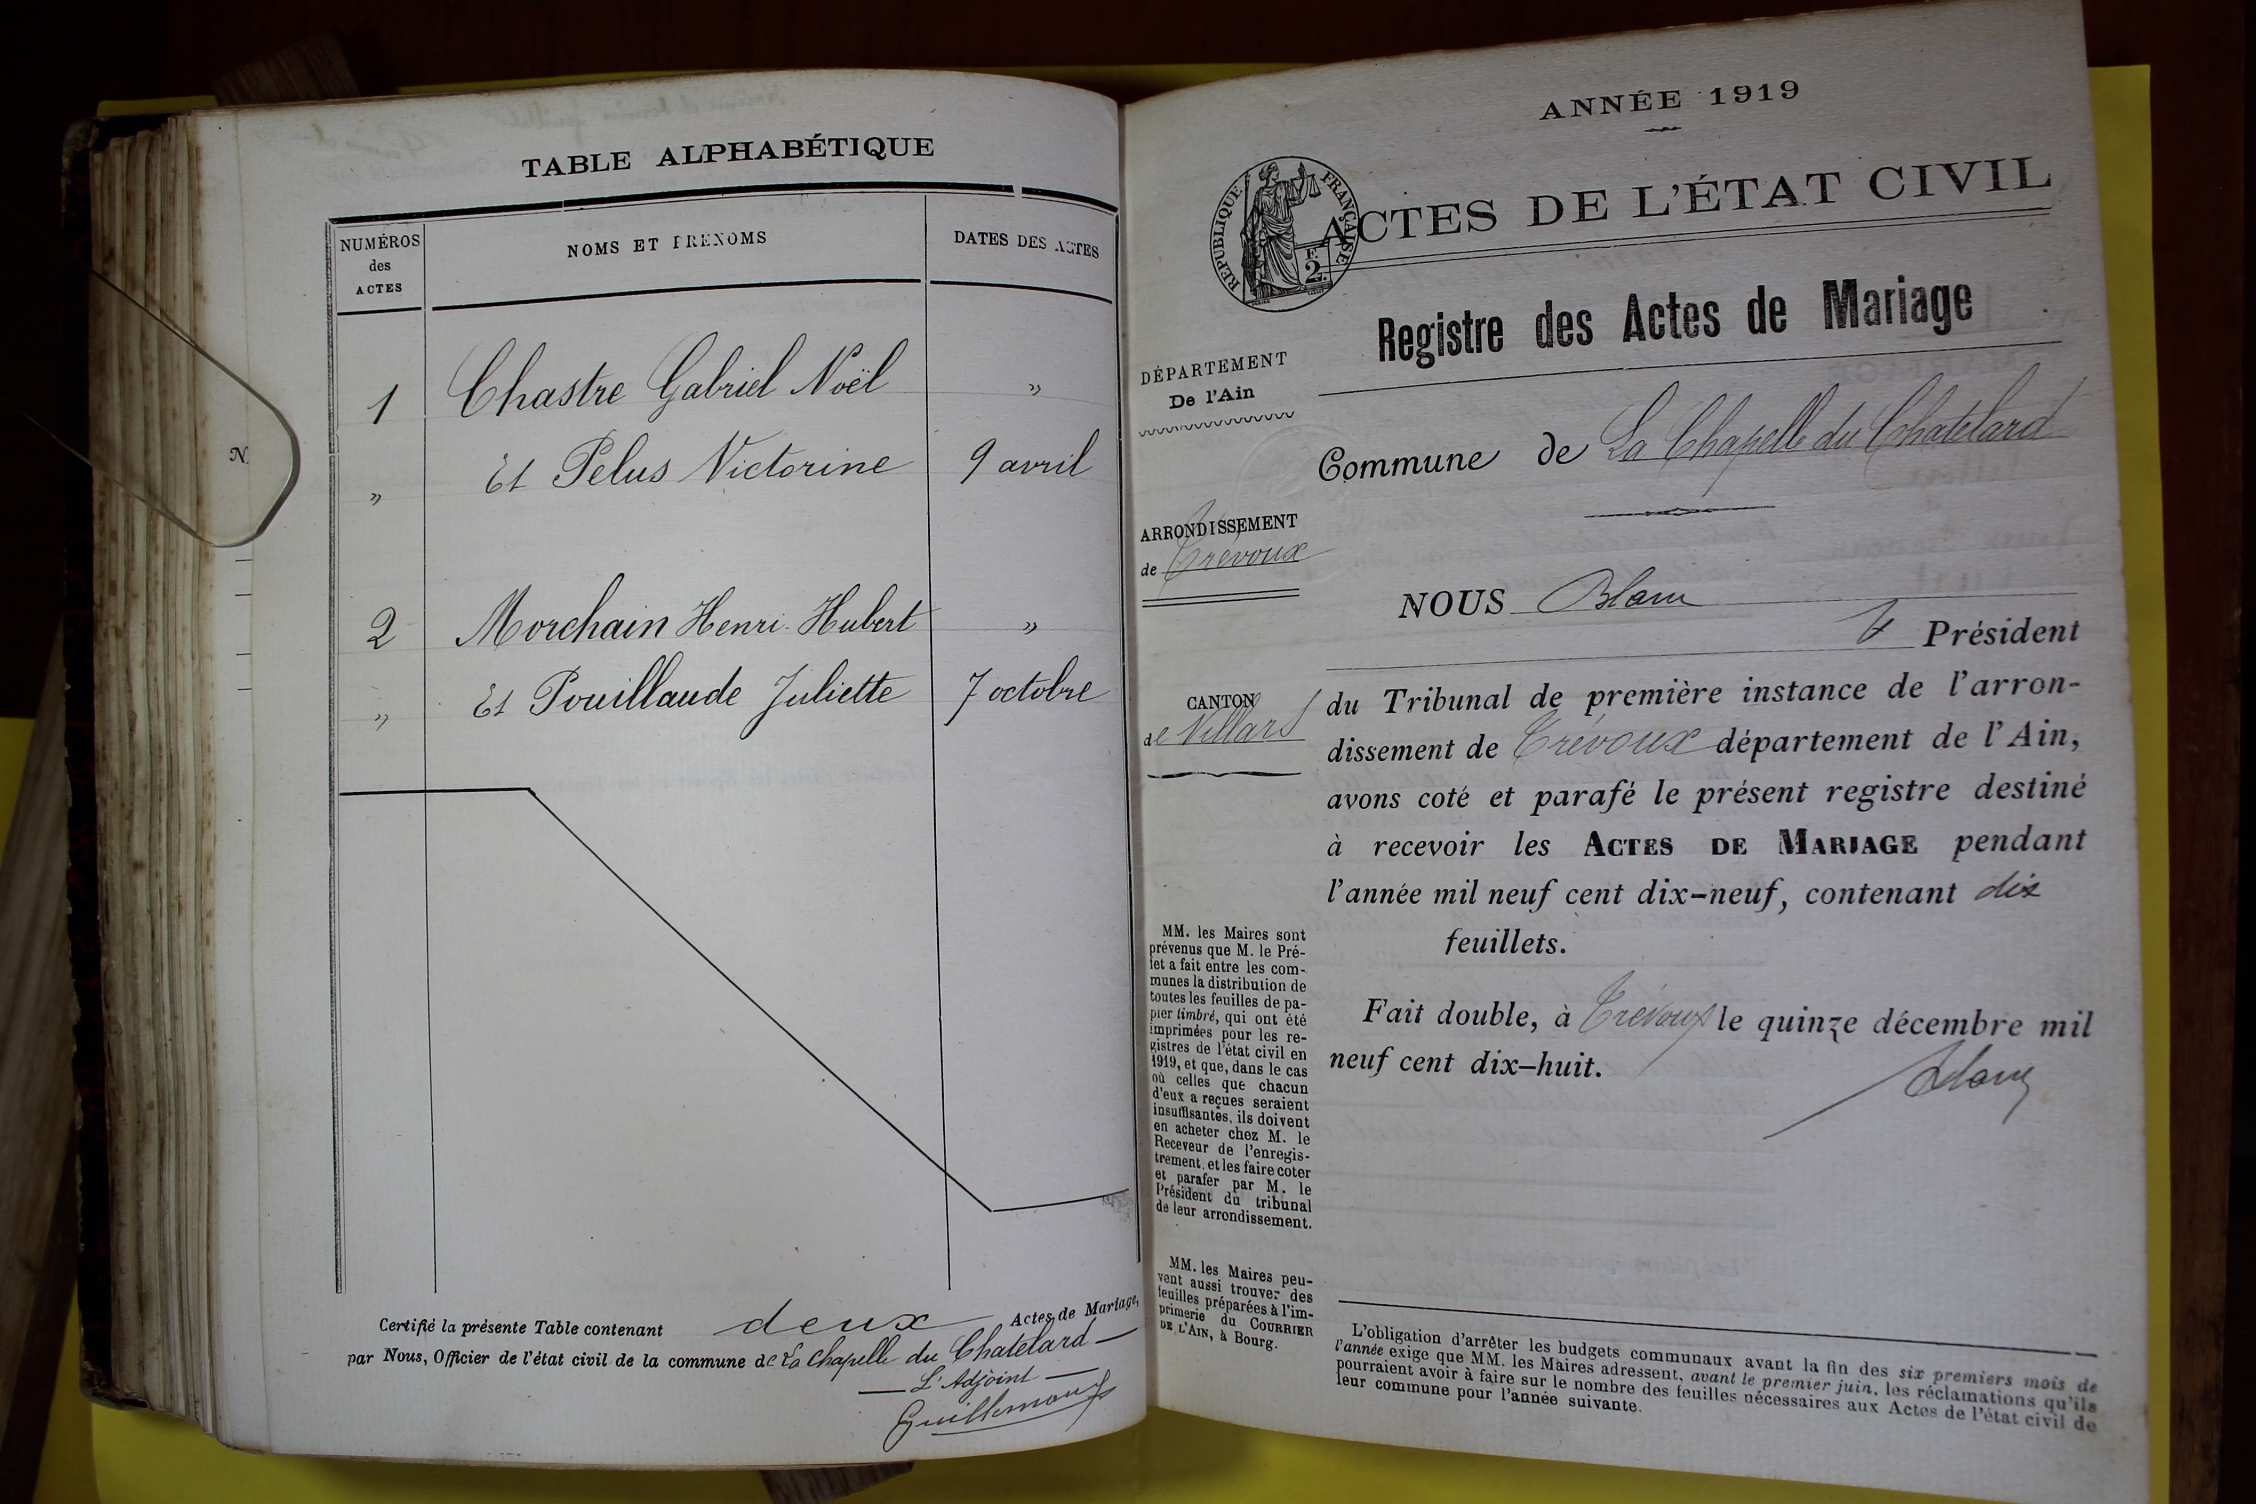 TABLE ALPHABÉTIQUE
NUMÉROS
des
ACTES
NOMS ET PRÉNOMS
DATES DES ACTES
1 Chastre Gabriel Noël "
" Et Pelus Victorine 9 avril
2 Morchain Henri Hubert "
" Et Pouillaude Juliette 7 octobre
Certifié la présente Table contenant deux Actes de Mariage,
par Nous, Officier de l'état civil de la commune de La Chapelle du Chatelard
L'Adjoint
N.
ANNÉE 1919
RÉPUBLIQUE FRANÇAISE
F.
2.
ACTES DE L'ÉTAT CIVIL
Registre des Actes de Mariage
DÉPARTEMENT
De l'Ain
Commune de La Chapelle du Chatelard
ARRONDISSEMENT
de Trévoux
CANTON
de Villars
NOUS
Président
du Tribunal de première instance de l'arron-
dissement de Trévoux département de l'Ain,
avons coté et parafé le présent registre destiné
à recevoir les ACTES DE MARIAGE pendant
l'année mil neuf cent dix-neuf, contenant dix
feuillets.
Fait double, à Trévoux le quinze décembre mil
neuf cent dix-huit.
MM. les Maires sont
prévenus que M. le Pré-
fet a fait entre les com-
munes la distribution de
toutes les feuilles de pa-
pier timbré, qui ont été
imprimées pour les re-
gistres de l'état civil en
1919, et que, dans le cas
où celles que chacun
d'eux a reçues seraient
insuffisantes, ils doivent
en acheter chez M. le
Receveur de l'enregis-
trement, et les faire coter
et parafer par M. le
Président du tribunal
de leur arrondissement.
MM. les Maires peu-
vent aussi trouver des
feuilles préparées à l'im-
primerie du COURRIER
DE L'AIN, à Bourg.
L'obligation d'arrêter les budgets communaux avant la fin des six premiers mois de
l'année exige que MM. les Maires adressent, avant le premier juin, les réclamations qu'ils
pourraient avoir à faire sur le nombre des feuilles nécessaires aux Actes de l'état civil de
leur commune pour l'année suivante.